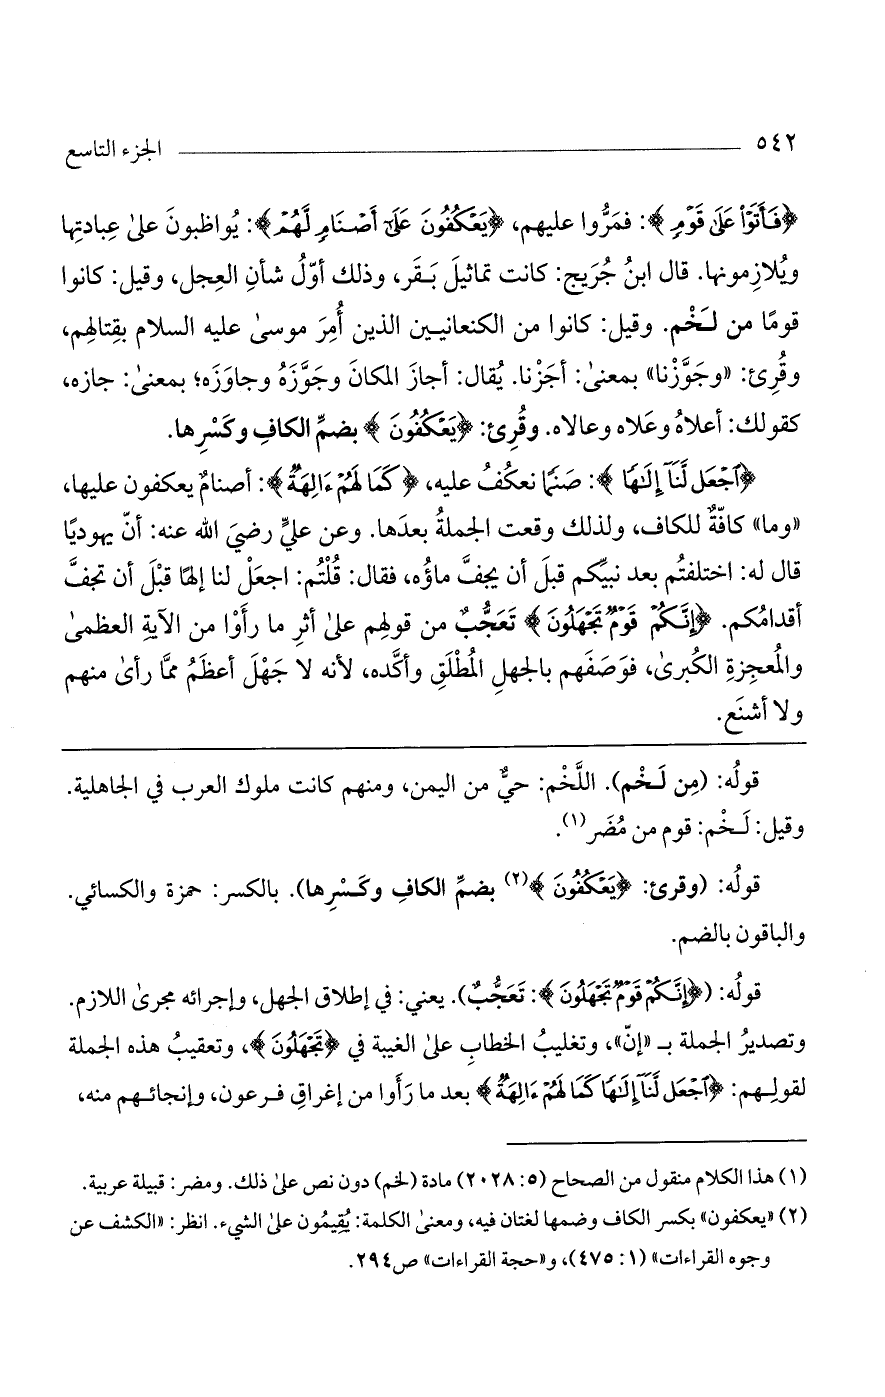 ٥٤٢ الجزء التاسع
﴿فَأَتَوْا۟ عَلَىٰ قَوْمٍ﴾: فمَرُّوا عليهم، ﴿يَعْكُفُونَ عَلَىٰٓ أَصْنَامٍ لَّهُمْ﴾: يُواظبونَ علىٰ عِبادتِها
ويُلازِمونها. قال ابنُ جُرَيج: كانت تماثيلَ بَقَر، وذلك أوّلُ شأنِ العِجل، وقيل: كانوا
قومًا من لَخْم. وقيل: كانوا من الكنعانيين الذين أُمِرَ موسىٰ عليه السلام بقِتالِهم،
وقُرِئ: «وجَوَّزْنا» بمعنىٰ: أجَزْنا. يُقال: أجازَ المكانَ وجَوَّزَهُ وجاوَزَه؛ بمعنىٰ: جازه،
كقولك: أعلاهُ وعَلاه وعالاه. وقُرِئ: ﴿يَعْكُفُونَ﴾ بضمِّ الكافِ وكَسْرِها.
﴿ٱجْعَل لَّنَآ إِلَٰهًا﴾: صَنَمًا نعكُفُ عليه، ﴿كَمَا لَهُمْ ءَالِهَةٌ﴾: أصنامٌ يعكفون عليها،
«وما» كافّةٌ للكاف، ولذلك وقعت الجملةُ بعدَها. وعن عليٍّ رضيَ الله عنه: أنّ يهوديًا
قال له: اختلفتُم بعد نبيِّكم قبلَ أن يجفَّ ماؤُه، فقال: قُلْتُم: اجعَلْ لنا إلهًا قبْلَ أن تجفَّ
أقدامُكم. ﴿إِنَّكُمْ قَوْمٌ تَجْهَلُونَ﴾ تَعَجُّبٌ من قولِهم علىٰ أثرِ ما رأَوْا من الآيةِ العظمىٰ
والمُعجِزةِ الكُبرىٰ، فوَصَفَهم بالجهلِ المُطْلَقِ وأكَّده، لأنه لا جَهْلَ أعظَمُ ممَّا رأىٰ منهم
ولا أشنَع.
قولُه: (مِن لَخْم). اللَّخْم: حيٌّ من اليمن، ومنهم كانت ملوك العرب في الجاهلية.
وقيل: لَخْم: قوم من مُضَر(١).
قولُه: (وقرئ: ﴿يَعْكُفُونَ﴾(٢) بضمِّ الكافِ وكَسْرِها). بالكسر: حمزة والكسائي.
والباقون بالضم.
قولُه: (﴿إِنَّكُمْ قَوْمٌ تَجْهَلُونَ﴾: تَعَجُّبٌ). يعني: في إطلاق الجهل، وإجرائه مجرىٰ اللازم.
وتصديرُ الجملة بـ «إنّ»، وتغليبُ الخطابِ علىٰ الغيبة في ﴿تَجْهَلُونَ﴾، وتعقيبُ هذه الجملة
لقولِهم: ﴿ٱجْعَل لَّنَآ إِلَٰهًا كَمَا لَهُمْ ءَالِهَةٌ﴾ بعد ما رَأَوا من إغراقِ فرعون، وإنجائهم منه،
(١) هذا الكلام منقول من الصحاح (٥: ٢٠٢٨) مادة (لخم) دون نص علىٰ ذلك. ومضر: قبيلة عربية.
(٢) «يعكفون» بكسر الكاف وضمها لغتان فيه، ومعنىٰ الكلمة: يُقِيمُون علىٰ الشيء. انظر: «الكشف عن
وجوه القراءات» (١: ٤٧٥)، و«حجة القراءات» ص٢٩٤.